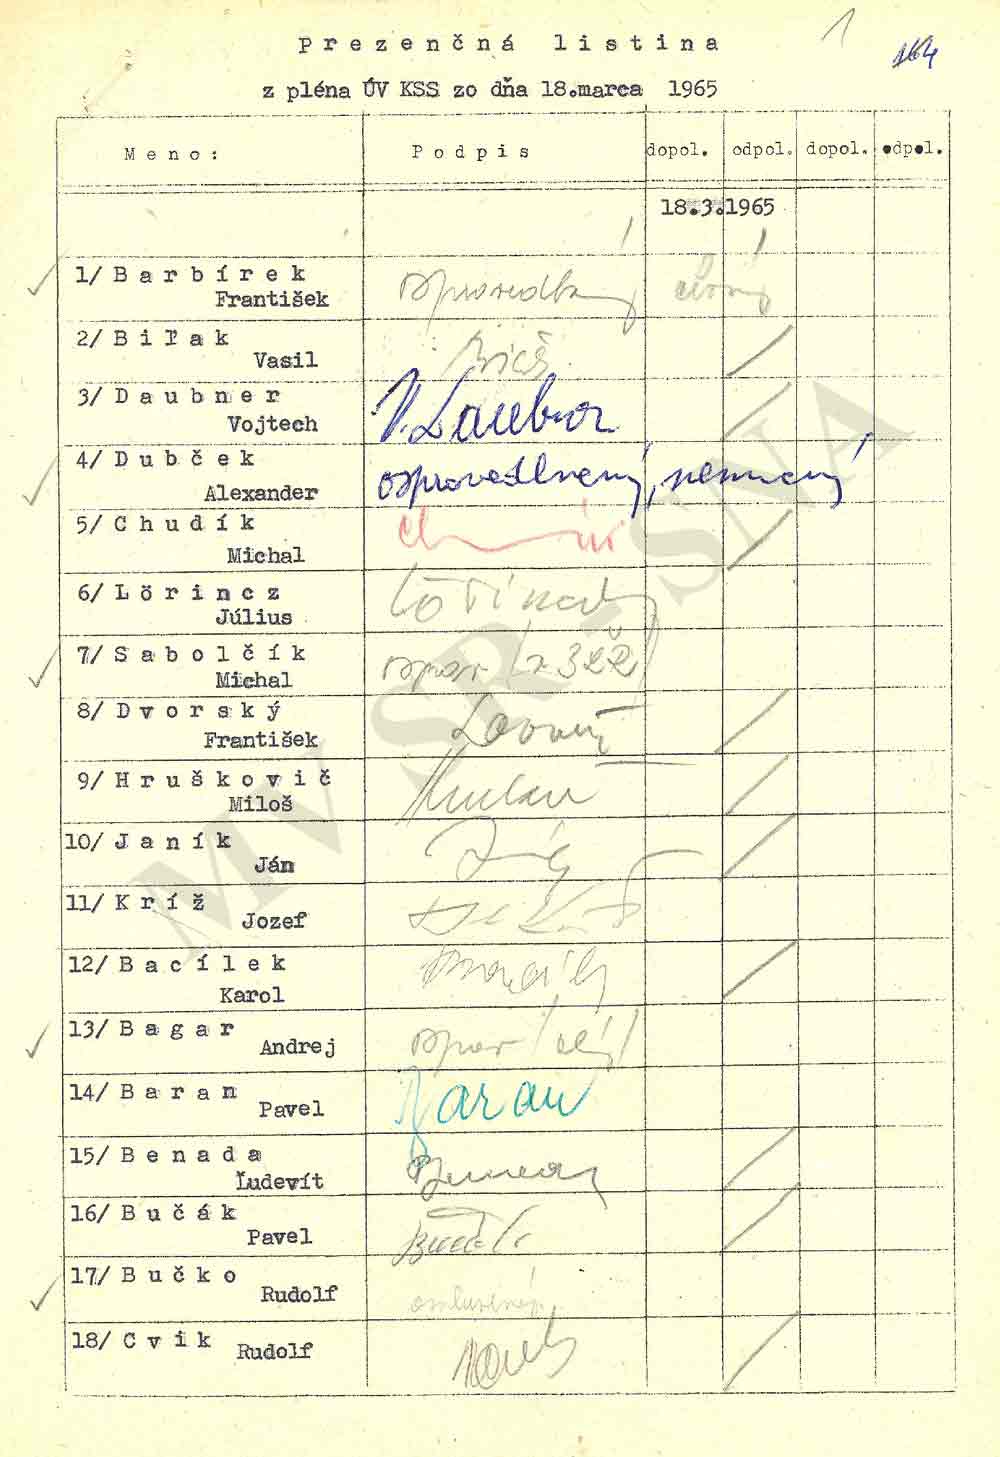 1
164
Prezenčná listina
z pléna ÚV KSS zo dňa 18.marca 1965
Meno: Podpis dopol. odpol. dopol. odpol.
18.3.1965
1/ Barbírek
František
2/ Biľak
Vasil
3/ Daubner
Vojtech
V. Daubner
4/ Dubček
Alexander
ospravedlnený, nemocný
5/ Chudík
Michal
6/ Lörincz
Július
7/ Sabolčík
Michal
8/ Dvorský
František
9/ Hruškovič
Miloš
10/ Janík
Ján
11/ Kríž
Jozef
12/ Bacílek
Karol
13/ Bagar
Andrej
14/ Baran
Pavel
Baran
15/ Benada
Ľudevít
16/ Bučák
Pavel
17/ Bučko
Rudolf
18/ Cvik
Rudolf
MV SR - SNA